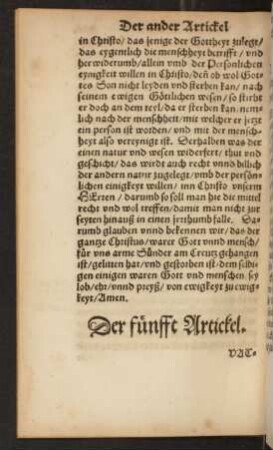 Der ander Artickel
in Christo/ das jenige der Gottheyt zulegt/
das eygentlich die menschheyt betrifft/ vnd
her widerumb/ allein vmb der Persönlichen
eynigkeit willen in Christo/ deñ ob wol Got⸗
tes Son nicht leyden vnd sterben kan/ nach
seinem ewigen Göttlichen wesen/ so stirbt
er doch an dem teyl/ da er sterben kan/ nem⸗
lich nach der menschheit/ mit welcher er jetzt
ein person ist worden/ vnd mit der mensch⸗
heyt also vereynigt ist. Derhalben was der
einen natur vnd wesen widerfert/ thut vnd
geschicht/ das wirdt auch recht vnnd billich
der andern natur zugelegt/ vmb der persön⸗
lichen einigkeyt willen/ inn Christo vnserm
HErten/ darumb so soll man hie die mittel
recht vnd wol treffen/ damit man nicht zur
seyten hinauß in einen jrrthumb falle. Da⸗
rumb glauben vnnd bekennen wir/ das der
gantze Christus/ warer Gott vnnd mensch/
für vns arme Sünder am Creutz gehangen
ist/ gelitten hat/ vnd gestorben ist/ dem selbi⸗
gen einigen waren Gott vnd menschen sey
lob/ ehr/ vnnd preyß/ von ewigkeyt zu ewig⸗
keyt/ Amen.
Der fünfft Artickel.
VAT⸗